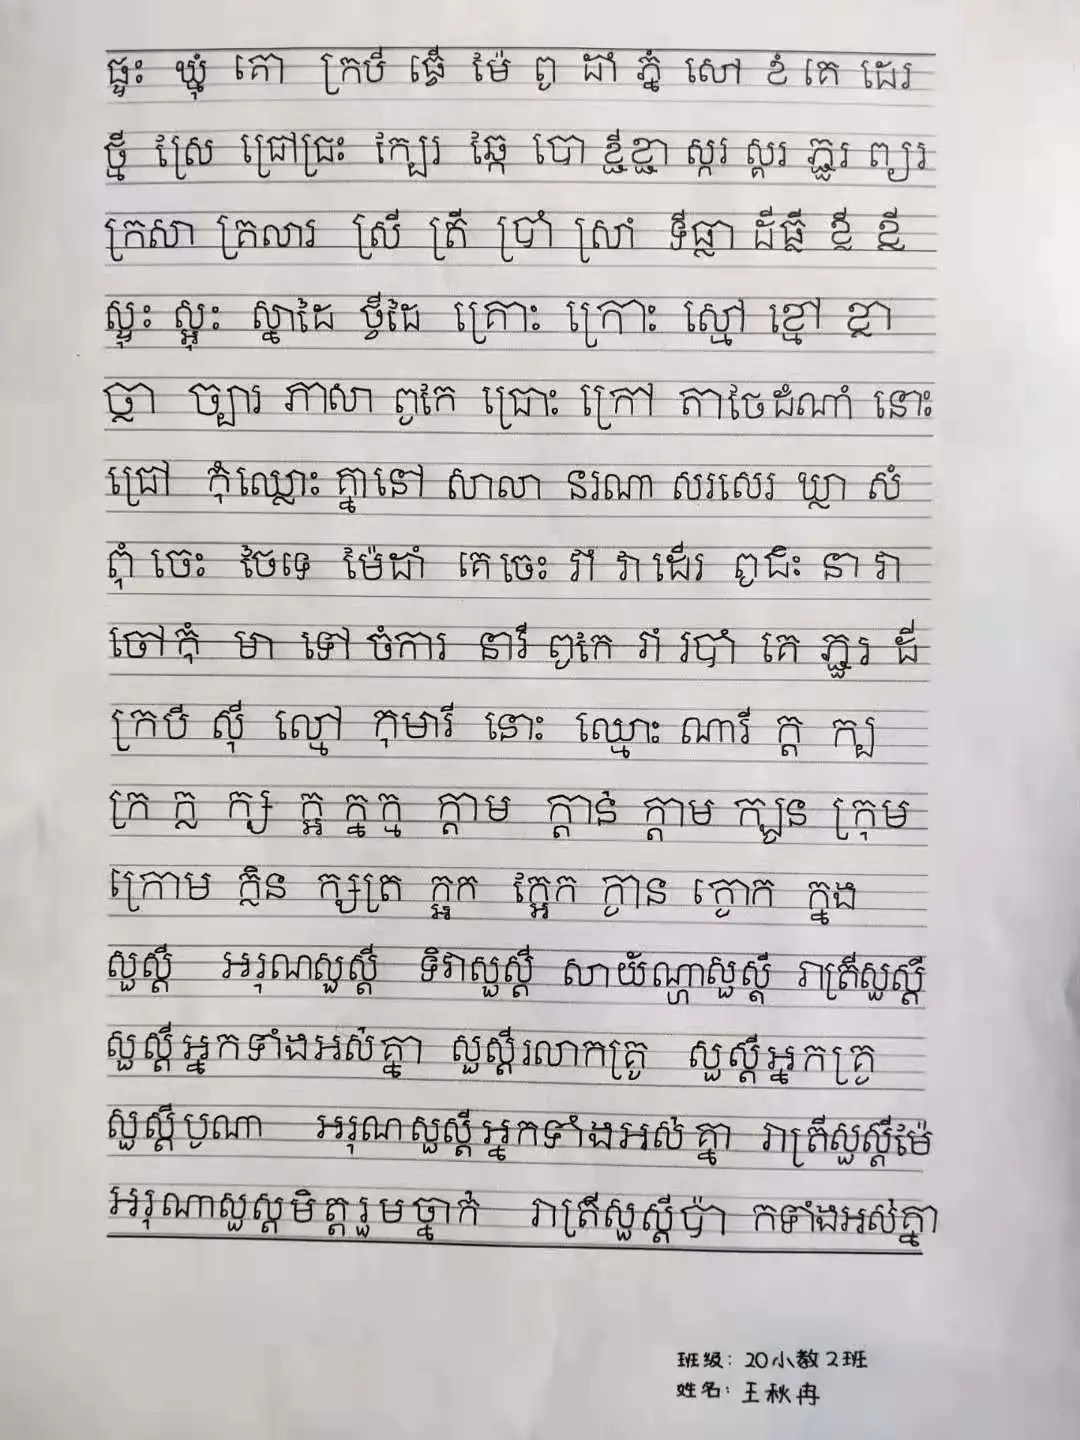 ផ្ទះ ឃ្មុំ គោ ក្របី ធ្វើ ម៉ែ ពូ ដាំ ភ្នំ សៅ ខំ គេ ដេរ
ថ្មី ស្រែ ជ្រៅជ្រះ ក្បែរ ឆ្កែ បោ ខ្ញីខ្ញា ស្ករ ស្គរ ភ្ជួរ ព្យួរ
ក្រសា គ្រលារ ស្រី ត្រី ប្រាំ ស្រាំ ទីធ្លា ដីធ្លី ខ្លី ខ្ចី
ស្ទុះ ស្អុះ ស្នាដៃ ថ្វីដៃ គ្រោះ ក្រោះ ស្មៅ ខ្មៅ ខ្លា
ថ្លា ច្បារ ភាសា ពូកែ ជ្រោះ ក្រៅ តាចៃដំណាំ នោះ
ជ្រៅ កុំឈ្លោះគ្នានៅ សាលា នរណា សរសេរ ឃ្លា សំ
ពុំ ចេះ ចៃទេ ម៉ែដាំ គេចេះ រ៉ា វា ដើរ ពូជិះ នាវា
ចៅកុំ មា ទៅ ចំការ នារី ពូកែ រាំ របាំ គេ ភ្ជួរ ដី
ក្របី ស៊ី ល្មៅ កុមារី នោះ ឈ្មោះ ណារី ក្ត ក្ប
ក្រ ក្ល ក្ស ក្អ ក្នក្ម ក្ដាម ក្ដាន់ ក្ដាម ក្បូន ក្រុម
ក្រោម ក្លិន ក្សត្រ ក្អក ក្អែក ក្ងាន ក្ងោក ក្នុង
សួស្តី អរុណសួស្តី ទិវាសួស្តី សាយ័ណ្ហសួស្តី រាត្រីសួស្តី
សួស្តីអ្នកទាំងអស់គ្នា សួស្តីលោកគ្រូ សួស្តីអ្នកគ្រូ
សួស្តីបូណា អរុណសួស្តីអ្នកទាំងអស់គ្នា រាត្រីសួស្តីម៉ែ
អរុណសួស្តមិត្តរួមថ្នាក់ រាត្រីសួស្តីប៉ា កទាំងអស់គ្នា
班级：20小教2班
姓名：王秋冉